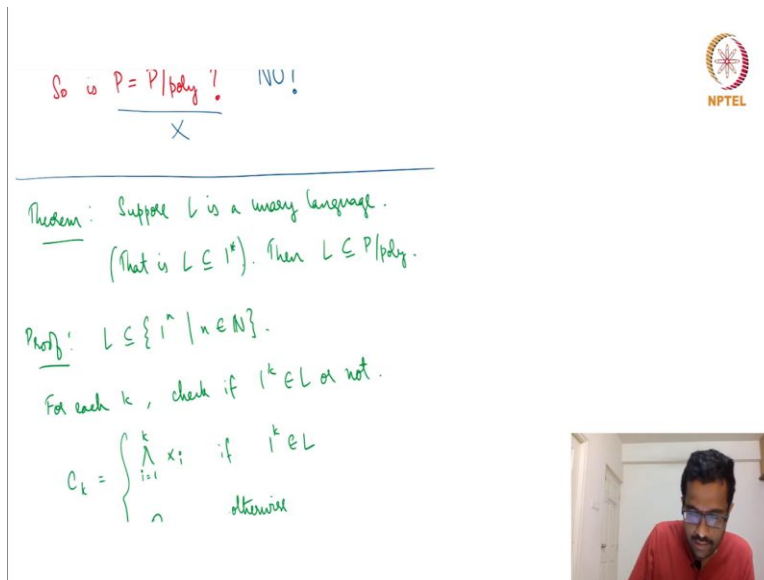 So is P = P/poly ? NO!
X
NPTEL
Theorem: Suppose L is a unary language.
(That is L ⊆ 1*). Then L ⊆ P/poly.
Proof: L ⊆ {1ⁿ | n ∈ N}.
For each k, check if 1ᵏ ∈ L or not.
Cₖ = { ⋀ᵢ₌₁ᵏ xᵢ if 1ᵏ ∈ L
0 otherwise